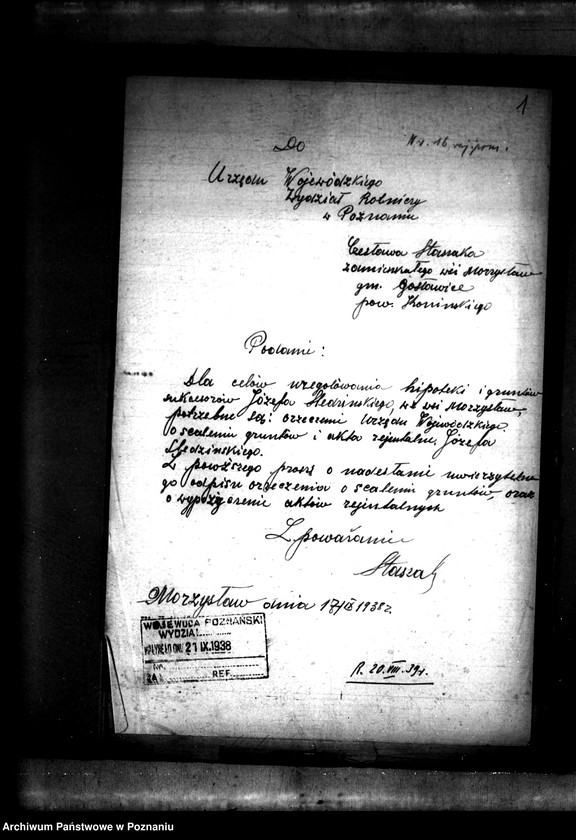 1
Do
Urzędu Wojewódzkiego
Wydział Rolniczy
w Poznaniu
Czesława Staszaka
zamieszkałego wsi Morzysław
gm. Gosławice
pow. Konińskiego
Podanie:
Dla celów uregulowania hipoteki i gruntów
sukcesorów Józefa Śledzińskiego, ze wsi Morzysław,
potrzebne są: orzeczenie Urzędu Wojewódzkiego
o scaleniu gruntów i akta rejentalne Józefa
Śledzińskiego.
Z powyższego proszę o nadesłanie uwierzytelnio
go odpisu orzeczenia o scaleniu gruntów, oraz
o wypożyczenie aktów rejentalnych
Z poważaniem
Staszak
Morzysław dnia 17/IX 1938 r.
WOJEWODA POZNAŃSKI
WYDZIAŁ
WPŁYNĘŁO DNIA 21 IX. 1938
Nr.
ZAŁ. REF.
R. 20.VIII.39r.
Archiwum Państwowe w Poznaniu